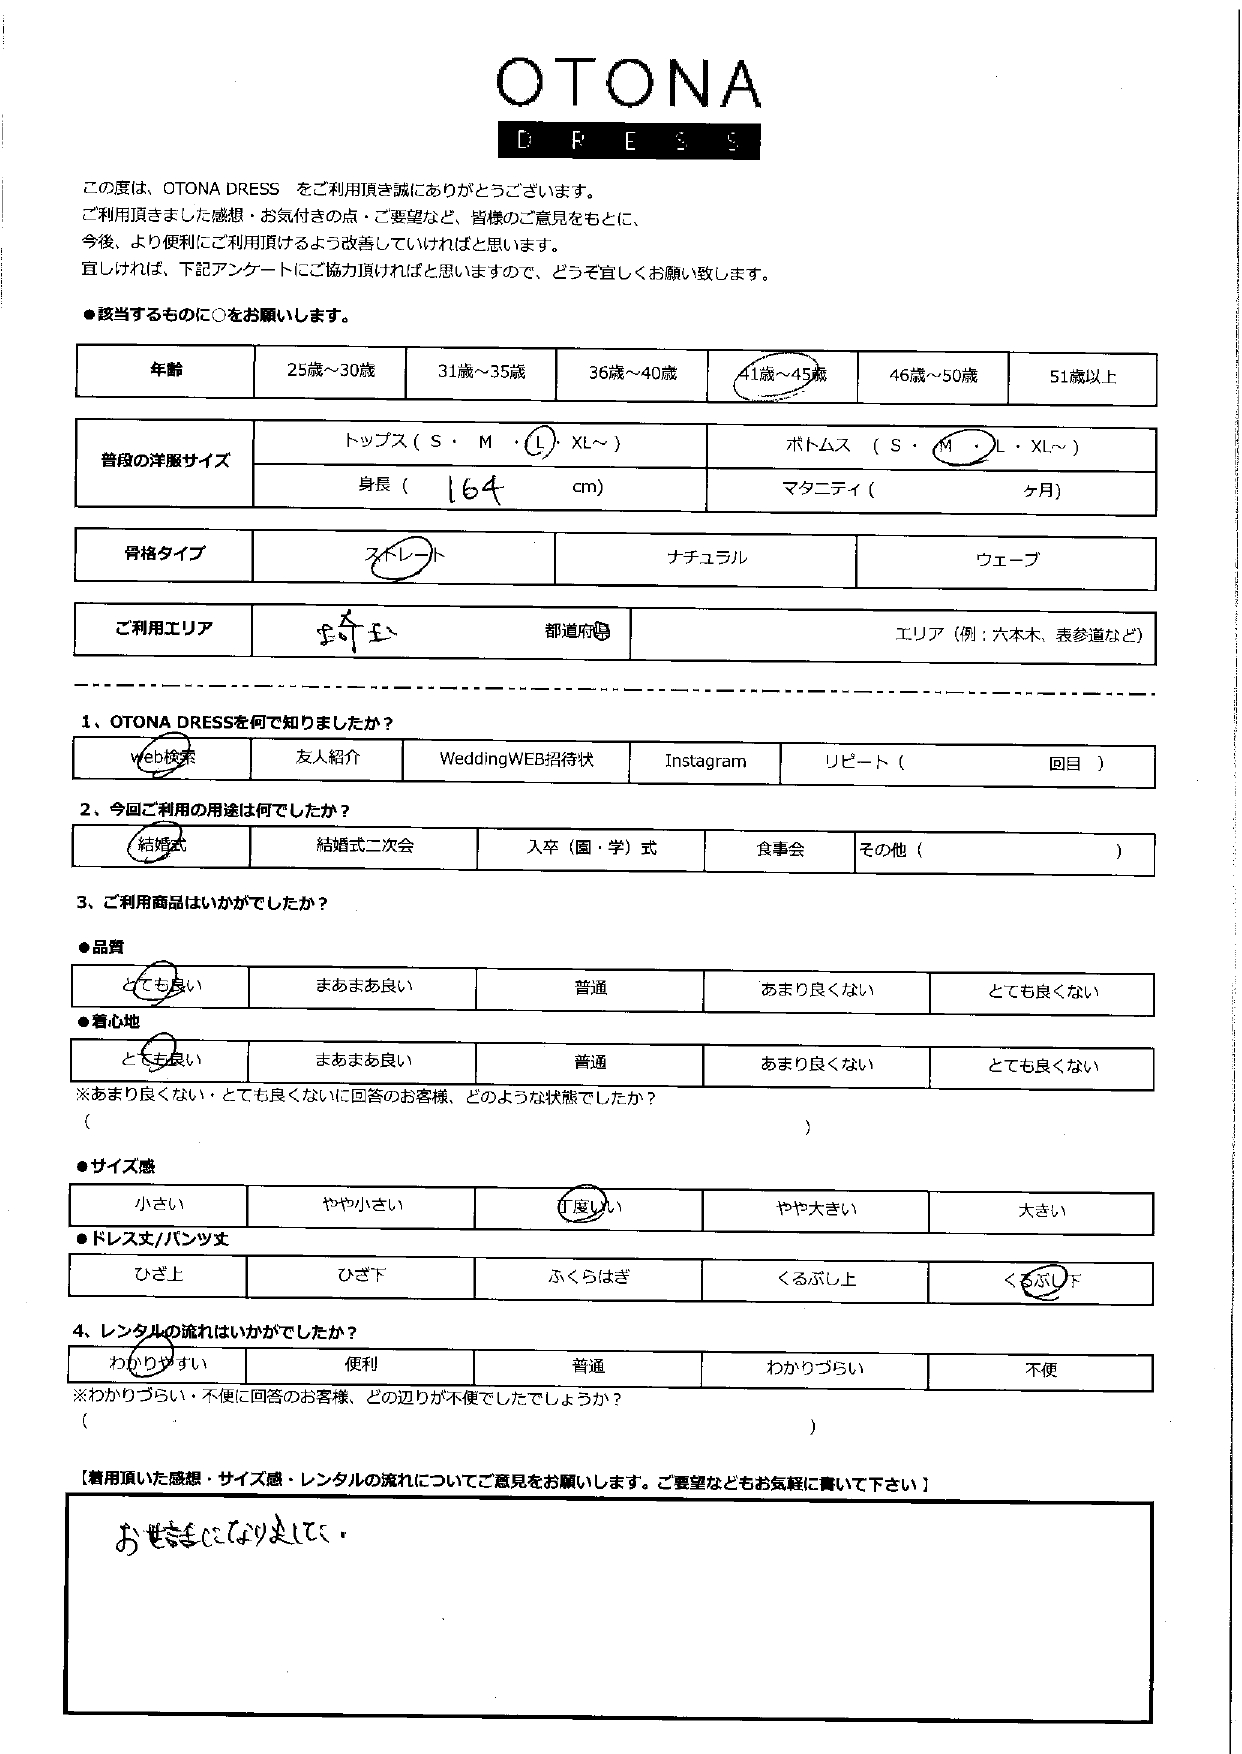 OTONA
DRESS
この度は、OTONA DRESS　をご利用頂き誠にありがとうございます。
ご利用頂きました感想・お気付きの点・ご要望など、皆様のご意見をもとに、
今後、より便利にご利用頂けるよう改善していければと思います。
宜しければ、下記アンケートにご協力頂ければと思いますので、どうぞ宜しくお願い致します。
●該当するものに○をお願いします。
年齢 25歳～30歳 31歳～35歳 36歳～40歳 41歳～45歳 46歳～50歳 51歳以上
普段の洋服サイズ トップス ( S ・ M ・ L ・ XL～ ) ボトムス ( S ・ M ・ L ・ XL～ )
身長 ( 164 cm) マタニティ ( ヶ月)
骨格タイプ ストレート ナチュラル ウェーブ
ご利用エリア 埼玉 都道府県 エリア（例：六本木、表参道など）
1、OTONA DRESSを何で知りましたか？
web検索 友人紹介 WeddingWEB招待状 Instagram リピート ( 回目 )
2、今回ご利用の用途は何でしたか？
結婚式 結婚式二次会 入卒（園・学）式 食事会 その他 ( )
3、ご利用商品はいかがでしたか？
●品質
とても良い まあまあ良い 普通 あまり良くない とても良くない
●着心地
とても良い まあまあ良い 普通 あまり良くない とても良くない
※あまり良くない・とても良くないに回答のお客様、どのような状態でしたか？
( )
●サイズ感
小さい やや小さい 丁度いい やや大きい 大きい
●ドレス丈/パンツ丈
ひざ上 ひざ下 ふくらはぎ くるぶし上 くるぶし下
4、レンタルの流れはいかがでしたか？
わかりやすい 便利 普通 わかりづらい 不便
※わかりづらい・不便に回答のお客様、どの辺りが不便でしたでしょうか？
( )
【着用頂いた感想・サイズ感・レンタルの流れについてご意見をお願いします。ご要望などもお気軽に書いて下さい】
お世話になりました.